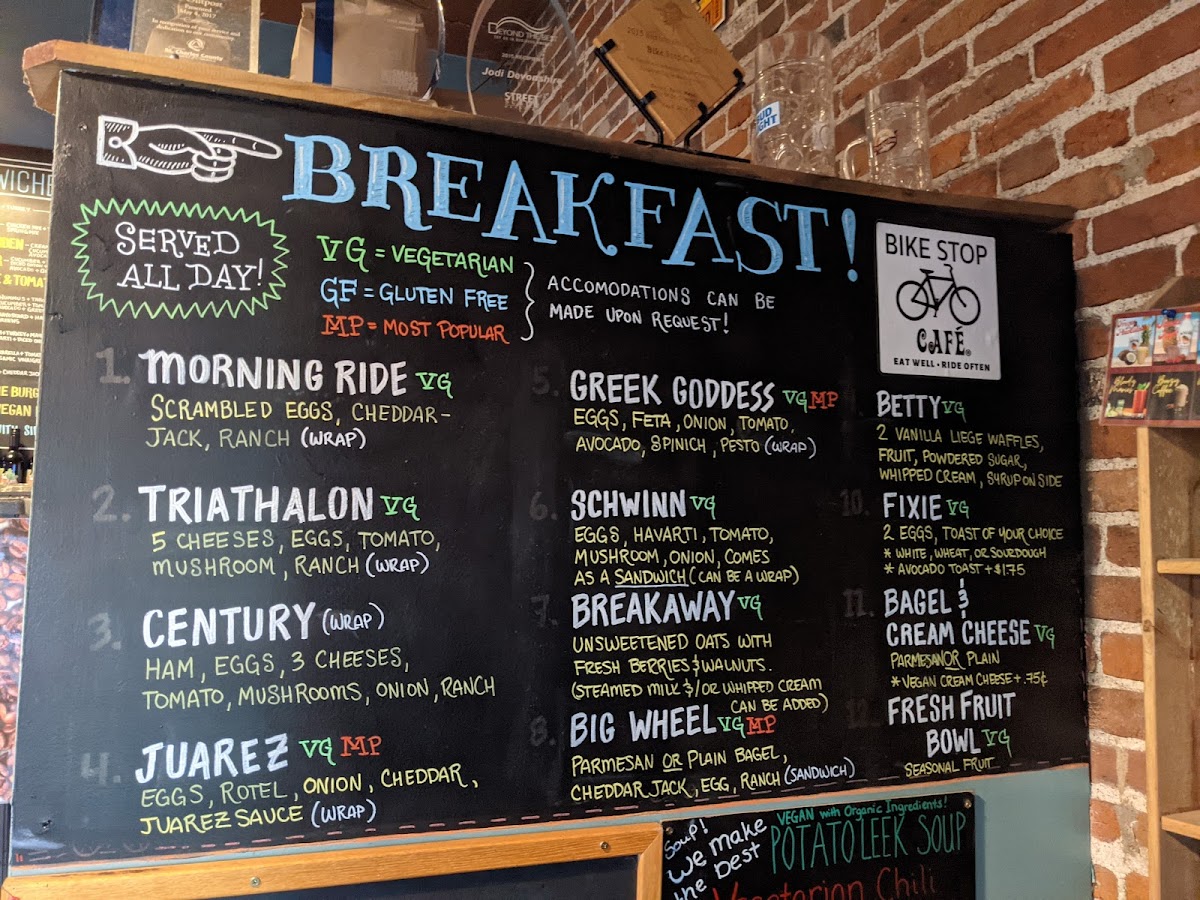 Presented
May 4, 2017
In recognition of your service and
dedication to our community
St. Charles County
Jodi Devonshire
STREET
Bike Stop Cafe
BUD
LIGHT
BREAKFAST!
SERVED
ALL DAY!
VG = VEGETARIAN
GF = GLUTEN FREE
MP = MOST POPULAR
ACCOMODATIONS CAN BE
MADE UPON REQUEST!
BIKE STOP
CAFÉ
EAT WELL • RIDE OFTEN
1. MORNING RIDE VG
SCRAMBLED EGGS, CHEDDAR-
JACK, RANCH (WRAP)
2. TRIATHALON VG
5 CHEESES, EGGS, TOMATO,
MUSHROOM, RANCH (WRAP)
3. CENTURY (WRAP)
HAM, EGGS, 3 CHEESES,
TOMATO, MUSHROOMS, ONION, RANCH
4. JUAREZ VG MP
EGGS, ROTEL, ONION, CHEDDAR,
JUAREZ SAUCE (WRAP)
5. GREEK GODDESS VG MP
EGGS, FETA, ONION, TOMATO,
AVOCADO, SPINICH, PESTO (WRAP)
6. SCHWINN VG
EGGS, HAVARTI, TOMATO,
MUSHROOM, ONION, COMES
AS A SANDWICH (CAN BE A WRAP)
7. BREAKAWAY VG
UNSWEETENED OATS WITH
FRESH BERRIES & WALNUTS.
(STEAMED MILK &/OR WHIPPED CREAM
CAN BE ADDED)
8. BIG WHEEL VG MP
PARMESAN OR PLAIN BAGEL,
CHEDDAR JACK, EGG, RANCH (SANDWICH)
BETTY VG
2 VANILLA LIEGE WAFFLES,
FRUIT, POWDERED SUGAR,
WHIPPED CREAM, SYRUP ON SIDE
10. FIXIE VG
2 EGGS, TOAST OF YOUR CHOICE
* WHITE, WHEAT, OR SOURDOUGH
* AVOCADO TOAST +$1.75
11. BAGEL &
CREAM CHEESE VG
PARMESAN OR PLAIN
* VEGAN CREAM CHEESE + .75¢
12. FRESH FRUIT
BOWL VG
SEASONAL FRUIT
Soup!
We make
the best
VEGAN with Organic Ingredients!
POTATO LEEK SOUP
Vegetarian Chili